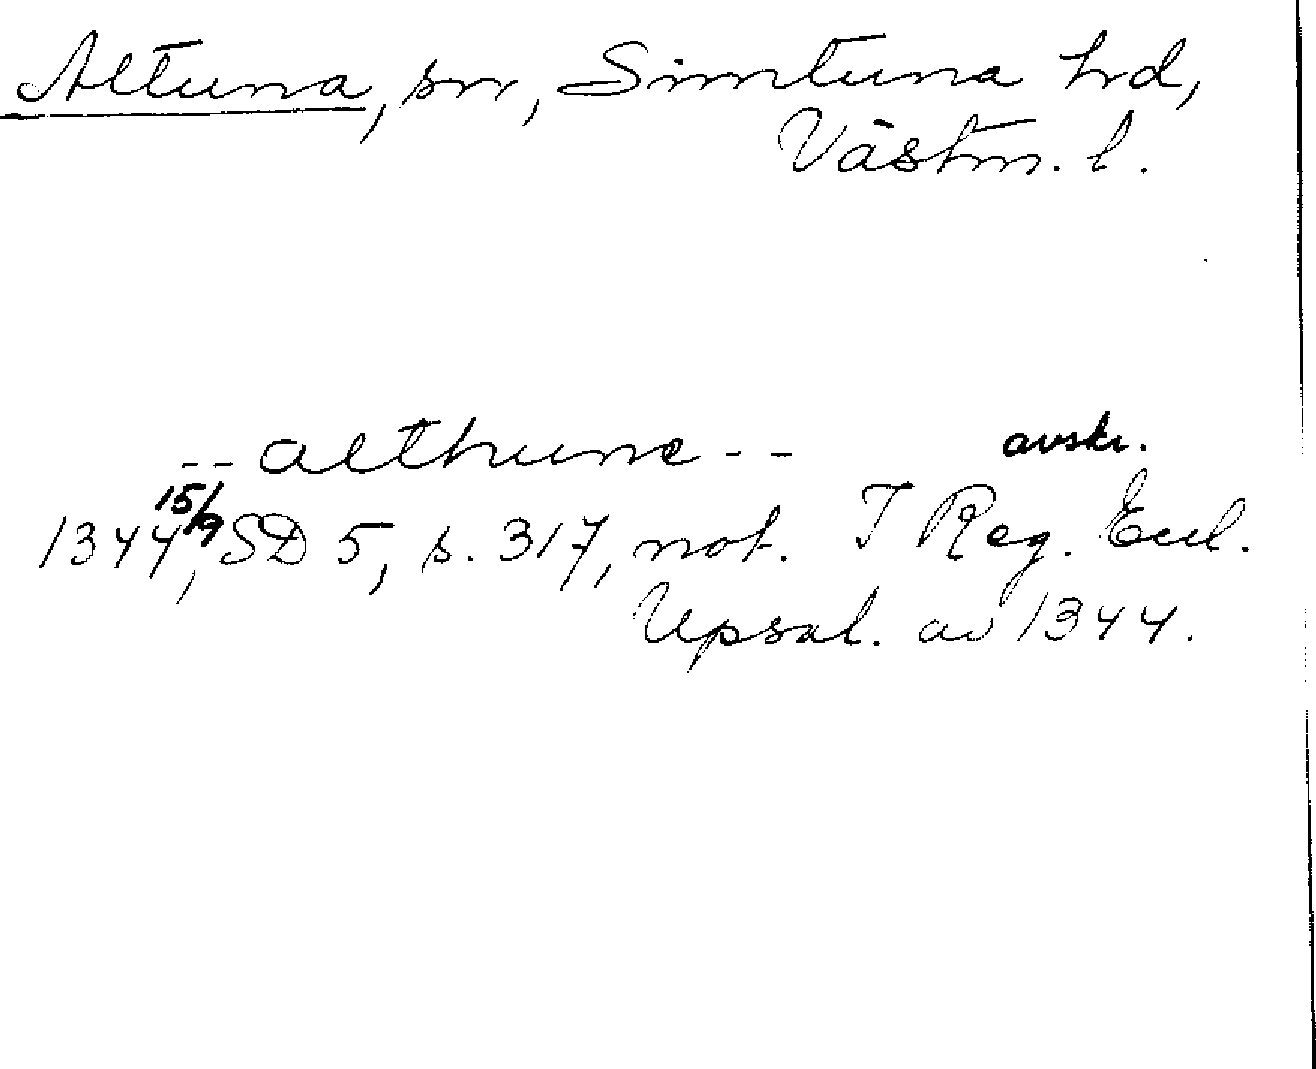 Altuna, sn, Simtuna hd,
Västm. l.
-- althune -- avskr.
1344 15/9, SD 5, s. 317, not. I Reg. Eccl.
Upsal. av 1344.